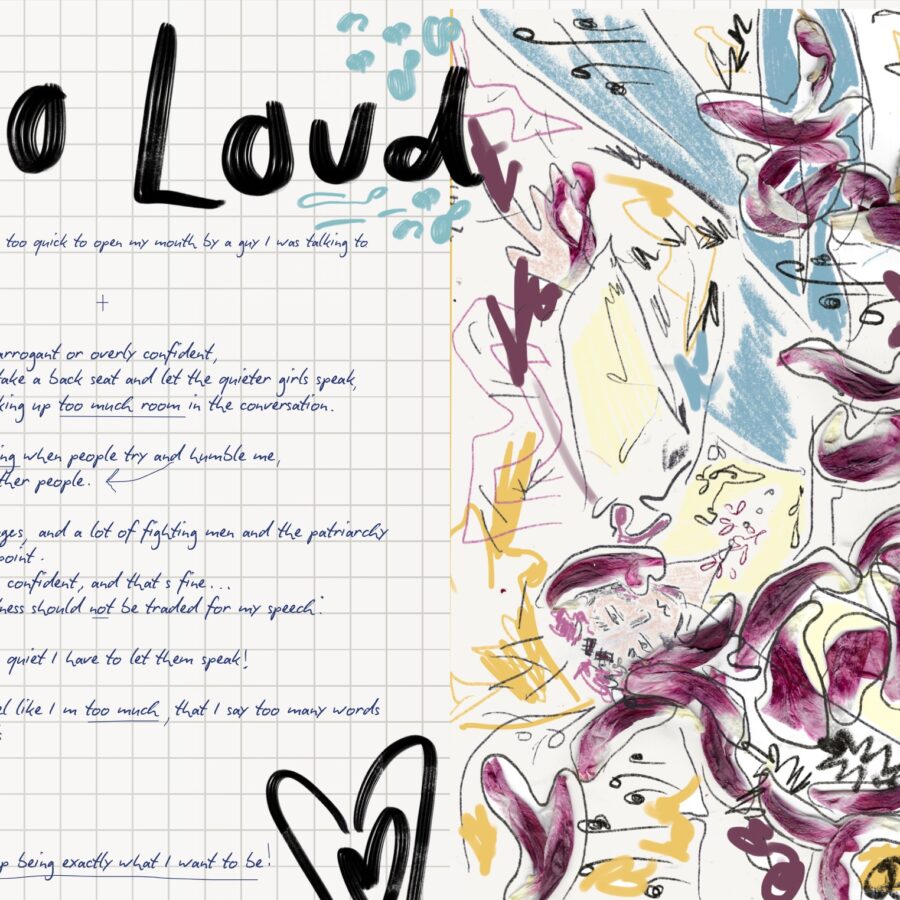 o Loud
too quick to open my mouth by a guy I was talking to
+
arrogant or overly confident,
take a back seat and let the quieter girls speak,
king up too much room in the conversation.
ing when people try and humble me,
ther people.
ges, and a lot of fighting men and the patriarchy
point.
confident, and that s fine...
ness should not be traded for my speech.
quiet I have to let them speak!
el like I m too much, that I say too many words
s
p being exactly what I want to be!